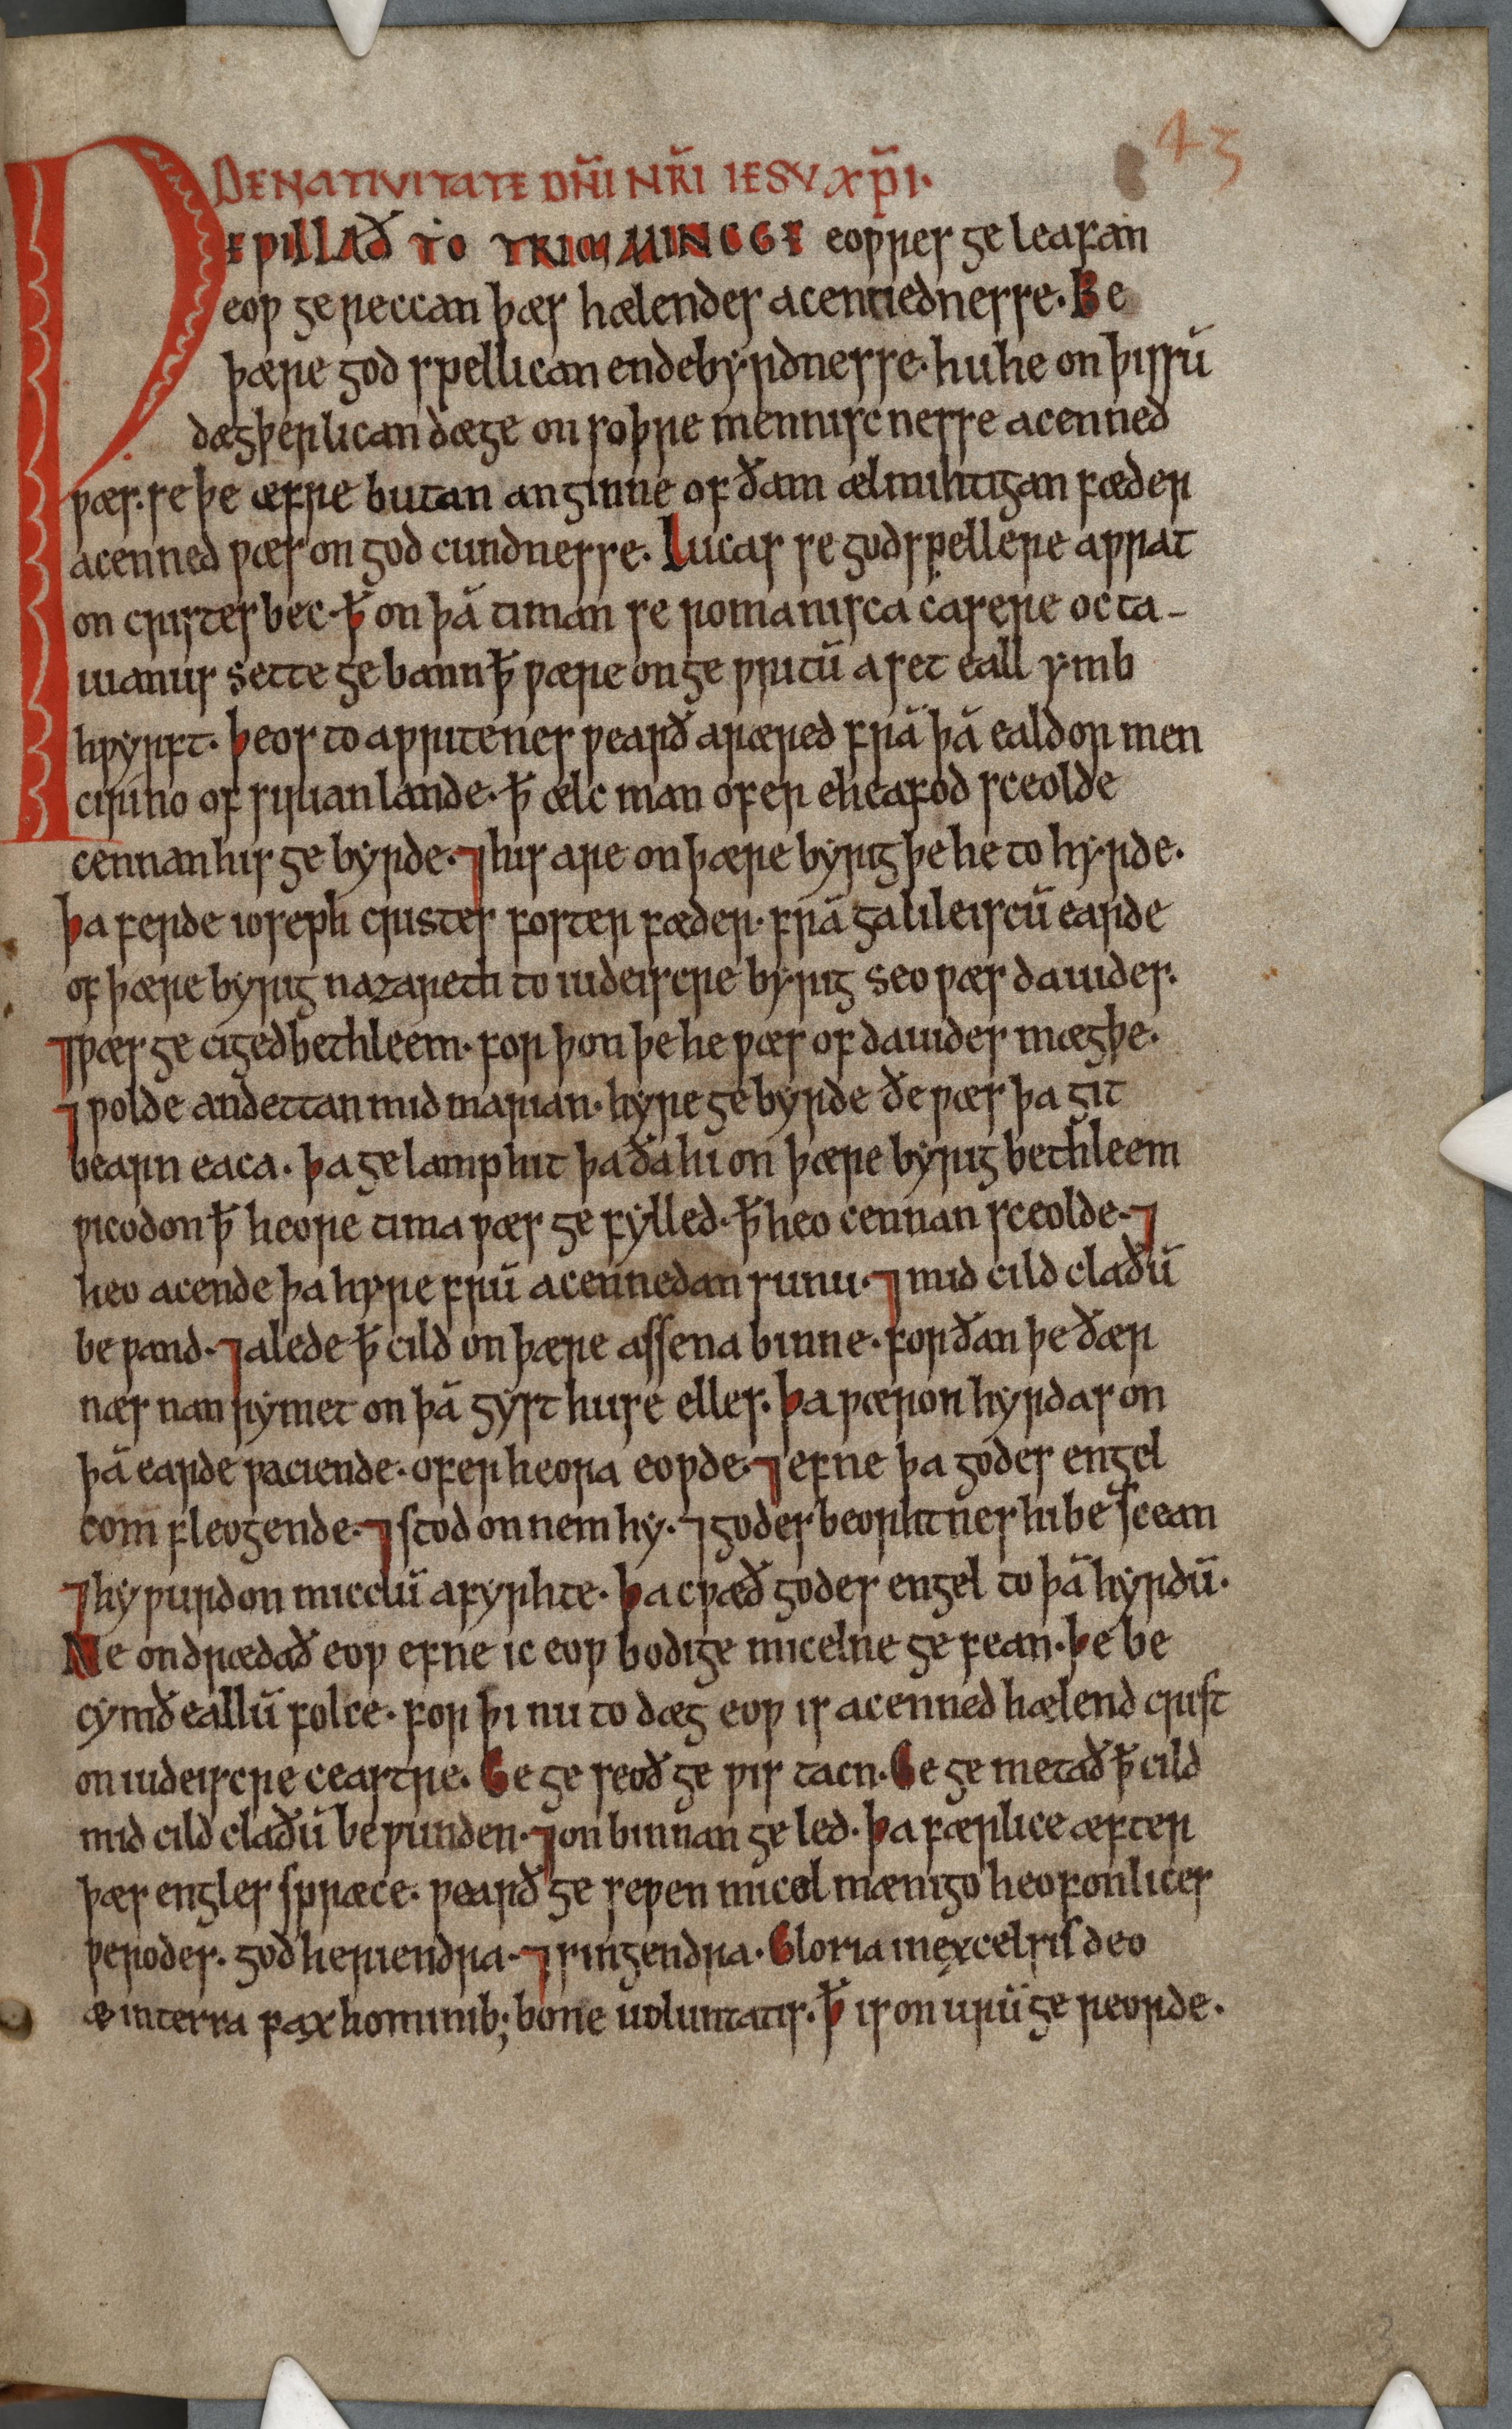 43
DE NATIVITATE DN̄I NR̄I IESV XP̄I·
Ƿe ƿillað to trimmincge eoƿres ge leafan
eoƿ ge reccan þæs hælendes acennednesse· Be
þære god spellican endebyrdnesse· hu he on þissū
dægþerlican dæge on soþre mennisc nesse acenned
ƿæs· se þe æfre butan anginne of ðam ælmihtigan fæder
acenned ƿæs on god cundnesse· Lucas se godspellere aƿrat
on cristes bec· ꝥ on þā timan se romanisca casere octa-
uianus sette ge bann ꝥ ƿære on ge ƿritū aset eall ymb
hƿyrft· Þeos to aƿritenes ƿearð aræred frā þā ealdor men
cirino of sirian lande· ꝥ ælc man ofer eheafod sceolde
cennan his ge byrde· ⁊ his are on þære byrig þe he to hyrde·
Þa ferde ioseph cristes foster fæder· frā galileiscū earde
of þære byrig nazareth to iudeiscre byrig seo ƿæs dauides·
⁊ ƿæs ge ciged bethleem· for þon þe he ƿæs of dauides mægþe·
⁊ ƿolde andettan mid marian· hyre ge byrde ðe ƿæs þa git
bearn eaca· Þa ge lamp hit þa ða hi on þære byrig bethleem
ƿicodon ꝥ heore tima ƿæs ge fylled· ꝥ heo cennan sceolde· ⁊
heo acende þa hyre frū acennedan sunu· ⁊ mid cild claðū
be ƿand· ⁊ alede ꝥ cild on þære assena binne· for ðan þe ðær
næs nan rymet on þā gyst huse elles· Þa ƿæron hyrdas on
þā earde ƿaciende· ofer heora eoƿde· ⁊ efne þa godes engel
com fleogende· ⁊ stod on nem hy· ⁊ godes beorhtnes hi be scean
⁊ hy ƿurdon micclū afyrhte· Þa cƿæð godes engel to þā hyrdū·
Ne ondrædað eoƿ efne ic eoƿ bodige micelne ge fean· þe be
cymð eallū folce· for þi nu to dæg eoƿ is acenned hælend crist
on iudeiscre ceastre· Ge ge seoð ge ƿis tacn· Ge ge metað ꝥ cild
mid cild claðū be ƿunden· ⁊ on binnan ge led· Þa færlice æfter
þæs engles spræce· ƿearð ge seƿen micel mænigo heofonlices
ƿerodes· god heriendra· ⁊ singendra· Gloria in excelsis deo
æ in terra pax hominib; bone uoluntatis· ꝥ is on urū ge reorde·